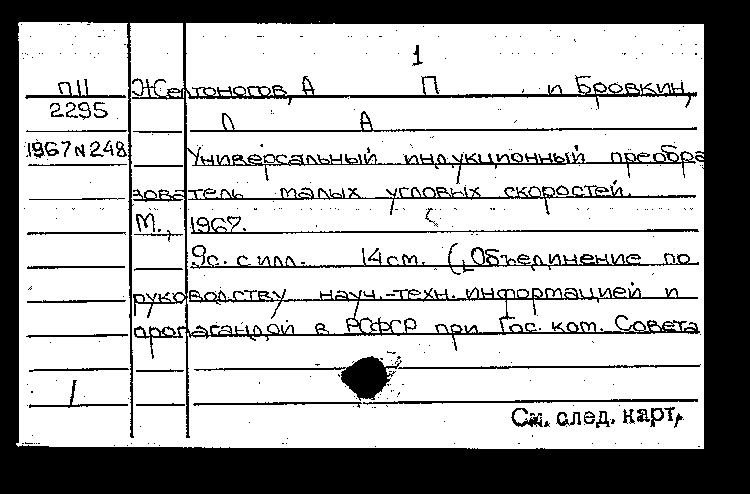 1
П11 Желтоногов, А П и Бровкин,
2295 Л А
1967 N 248 Универсальный индукционный преобра
зователь малых угловых скоростей.
М., 1967.
9с. с илл. 14 см. (Объединение по
руководству науч.-техн. информацией и
пропагандой в РСФСР при Гос. ком. Совета
1
См. след. карт,